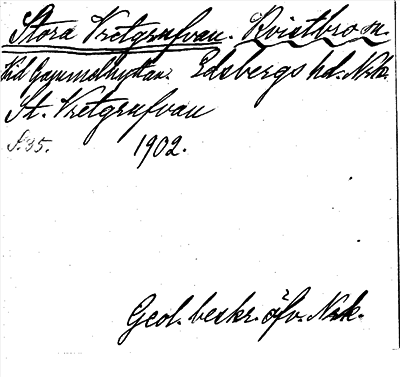 Stora Vretgrufvan. Kvistbro sn.
Vid Gammelhyttan. Edsbergs hd. Nrke.
St. Vretgrufvan
S. 35. 1902.
Geol. beskr. öfv. Nrk.